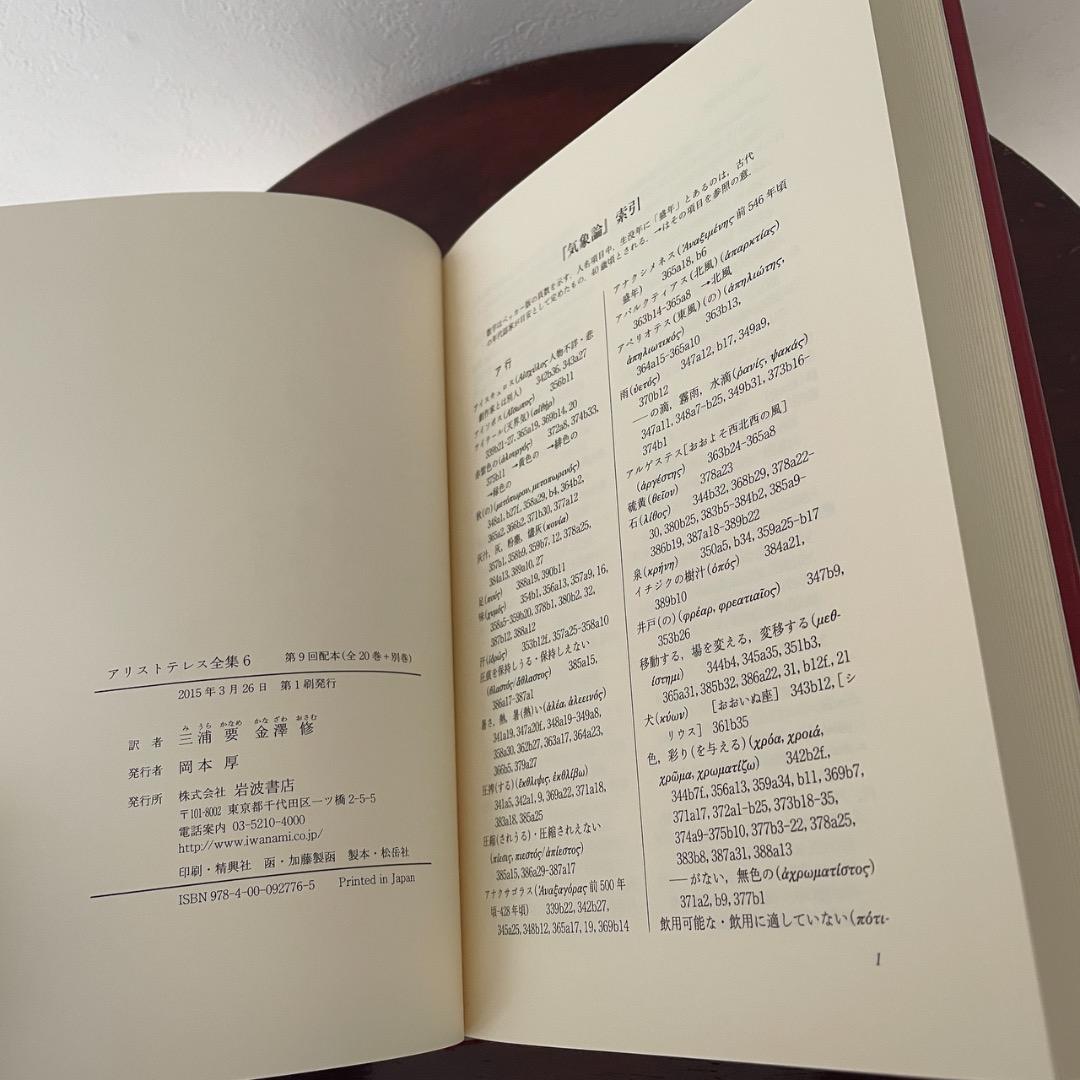 アリストテレス全集 6 第9回配本(全20巻+別巻)
2015年3月26日 第1刷発行
訳者 三浦 要 金澤 修
み うら かなめ かな ざわ おさむ
発行者 岡本 厚
発行所 株式会社 岩波書店
〒101-8002 東京都千代田区一ツ橋2-5-5
電話案内 03-5210-4000
http://www.iwanami.co.jp/
印刷・精興社 函・加藤製函 製本・松岳社
ISBN 978-4-00-092776-5 Printed in Japan
『気象論』索引
数字はベッカー版の頁数を示す.人名項目中,生没年に「盛年」とあるのは,古代
の年代誌家が目安として定めたもの.40歳頃とされる.→はその項目を参照の意.
ア 行
アイスキュロス(Αἰσχύλος 人物不詳・悲
劇作家とは別人) 342b36, 343a27
アイソポス(Αἴσωπος) 356b11
アイテール(天界気)(αἰθήρ)
339b21-27, 365a19, 369b14, 20
赤紫色の(ἁλουργός) 372a8, 374b33,
375b11 →黄色の →緋色の
→緑色の
秋(の)(μετόπωρον, μετοπωρινός)
348a1, b27f, 358a29, b4, 364b2,
365a2, 366b2, 371b30, 377a12
灰汁,灰,粉塵,燼灰(κονία)
357b1, 358b9, 359b7, 12, 378a25,
384a13, 389a10, 27
足(πούς) 388a19, 390b11
味(χυμός) 354b1, 356a13, 357a9, 16,
358a5-359b20, 378b1, 380b2, 32,
387b12, 388a12
汗(ἱδρώς) 353b12f, 357a25-358a10
圧痕を保持しうる・保持しえない
(θλαστός/ἄθλαστος) 385a15,
386a17-387a1
暑さ,熱,暑(熱)い(ἀλέα, ἀλεεινός)
341a19, 347a20f, 348a19-349a8,
358a30, 362b27, 363a17, 364a23,
366b5, 379a27
圧搾(する)(ἔκθλιψις, ἐκθλίβω)
341a5, 342a1, 9, 369a22, 371a18,
383a18, 385a25
圧縮(されうる)・圧縮されえない
(πίεσις, πιεστός/ἀπίεστος)
385a15, 386a29-387a17
アナクサゴラス(Ἀναξαγόρας 前500年
頃-428年頃) 339b22, 342b27,
345a25, 348b12, 365a17, 19, 369b14
アナクシメネス(Ἀναξιμένης 前546年頃
盛年) 365a18, b6
アパルクティアス(北風)(ἀπαρκτίας)
363b14-365a8 →北風
アペリオテス(東風)(の)(ἀπηλιώτης,
ἀπηλιωτικός) 363b13,
364a15-365a10
雨(ὑετός) 347a12, b17, 349a9,
370b12
——の滴,霧雨,水滴(ῥανίς, ψακάς)
347a11, 348a7-b25, 349b31, 373b16-
374b1
アルゲステス[おおよそ西北西の風]
(ἀργέστης) 363b24-365a8
硫黄(θεῖον) 378a23
石(λίθος) 344b32, 368b29, 378a22-
30, 380b25, 383b5-384b2, 385a9-
386b19, 387a18-389b22
泉(κρήνη) 350a5, b34, 359a25-b17
イチジクの樹汁(ὀπός) 384a21,
389b10
井戸(の)(φρέαρ, φρεατιαῖος) 347b9,
353b26
移動する,場を変える,変移する(μεθ-
ίστημι) 344b4, 345a35, 351b3,
365a31, 385b32, 386a22, 31, b12f, 21
犬(κύων) [おおいぬ座] 343b12, [シ
リウス] 361b35
色,彩り(を与える)(χρόα, χροιά,
χρῶμα, χρωματίζω) 342b2f,
344b7f, 356a13, 359a34, b11, 369b7,
371a17, 372a1-b25, 373b18-35,
374a9-375b10, 377b3-22, 378a25,
383b8, 387a31, 388a13
——がない,無色の(ἀχρωμάτιστος)
371a2, b9, 377b1
飲用可能な・飲用に適していない(πότι-
1